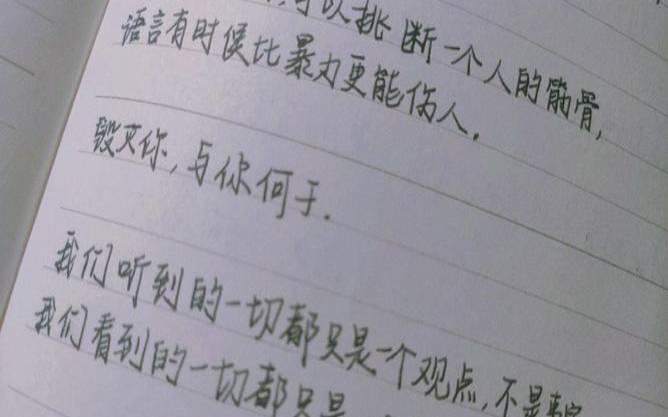 可以挑断一个人的筋骨,
语言有时候比暴力更能伤人.
毁灭你,与你何干.
我们听到的一切都只是一个观点,不是事实
我们看到的一切都只是